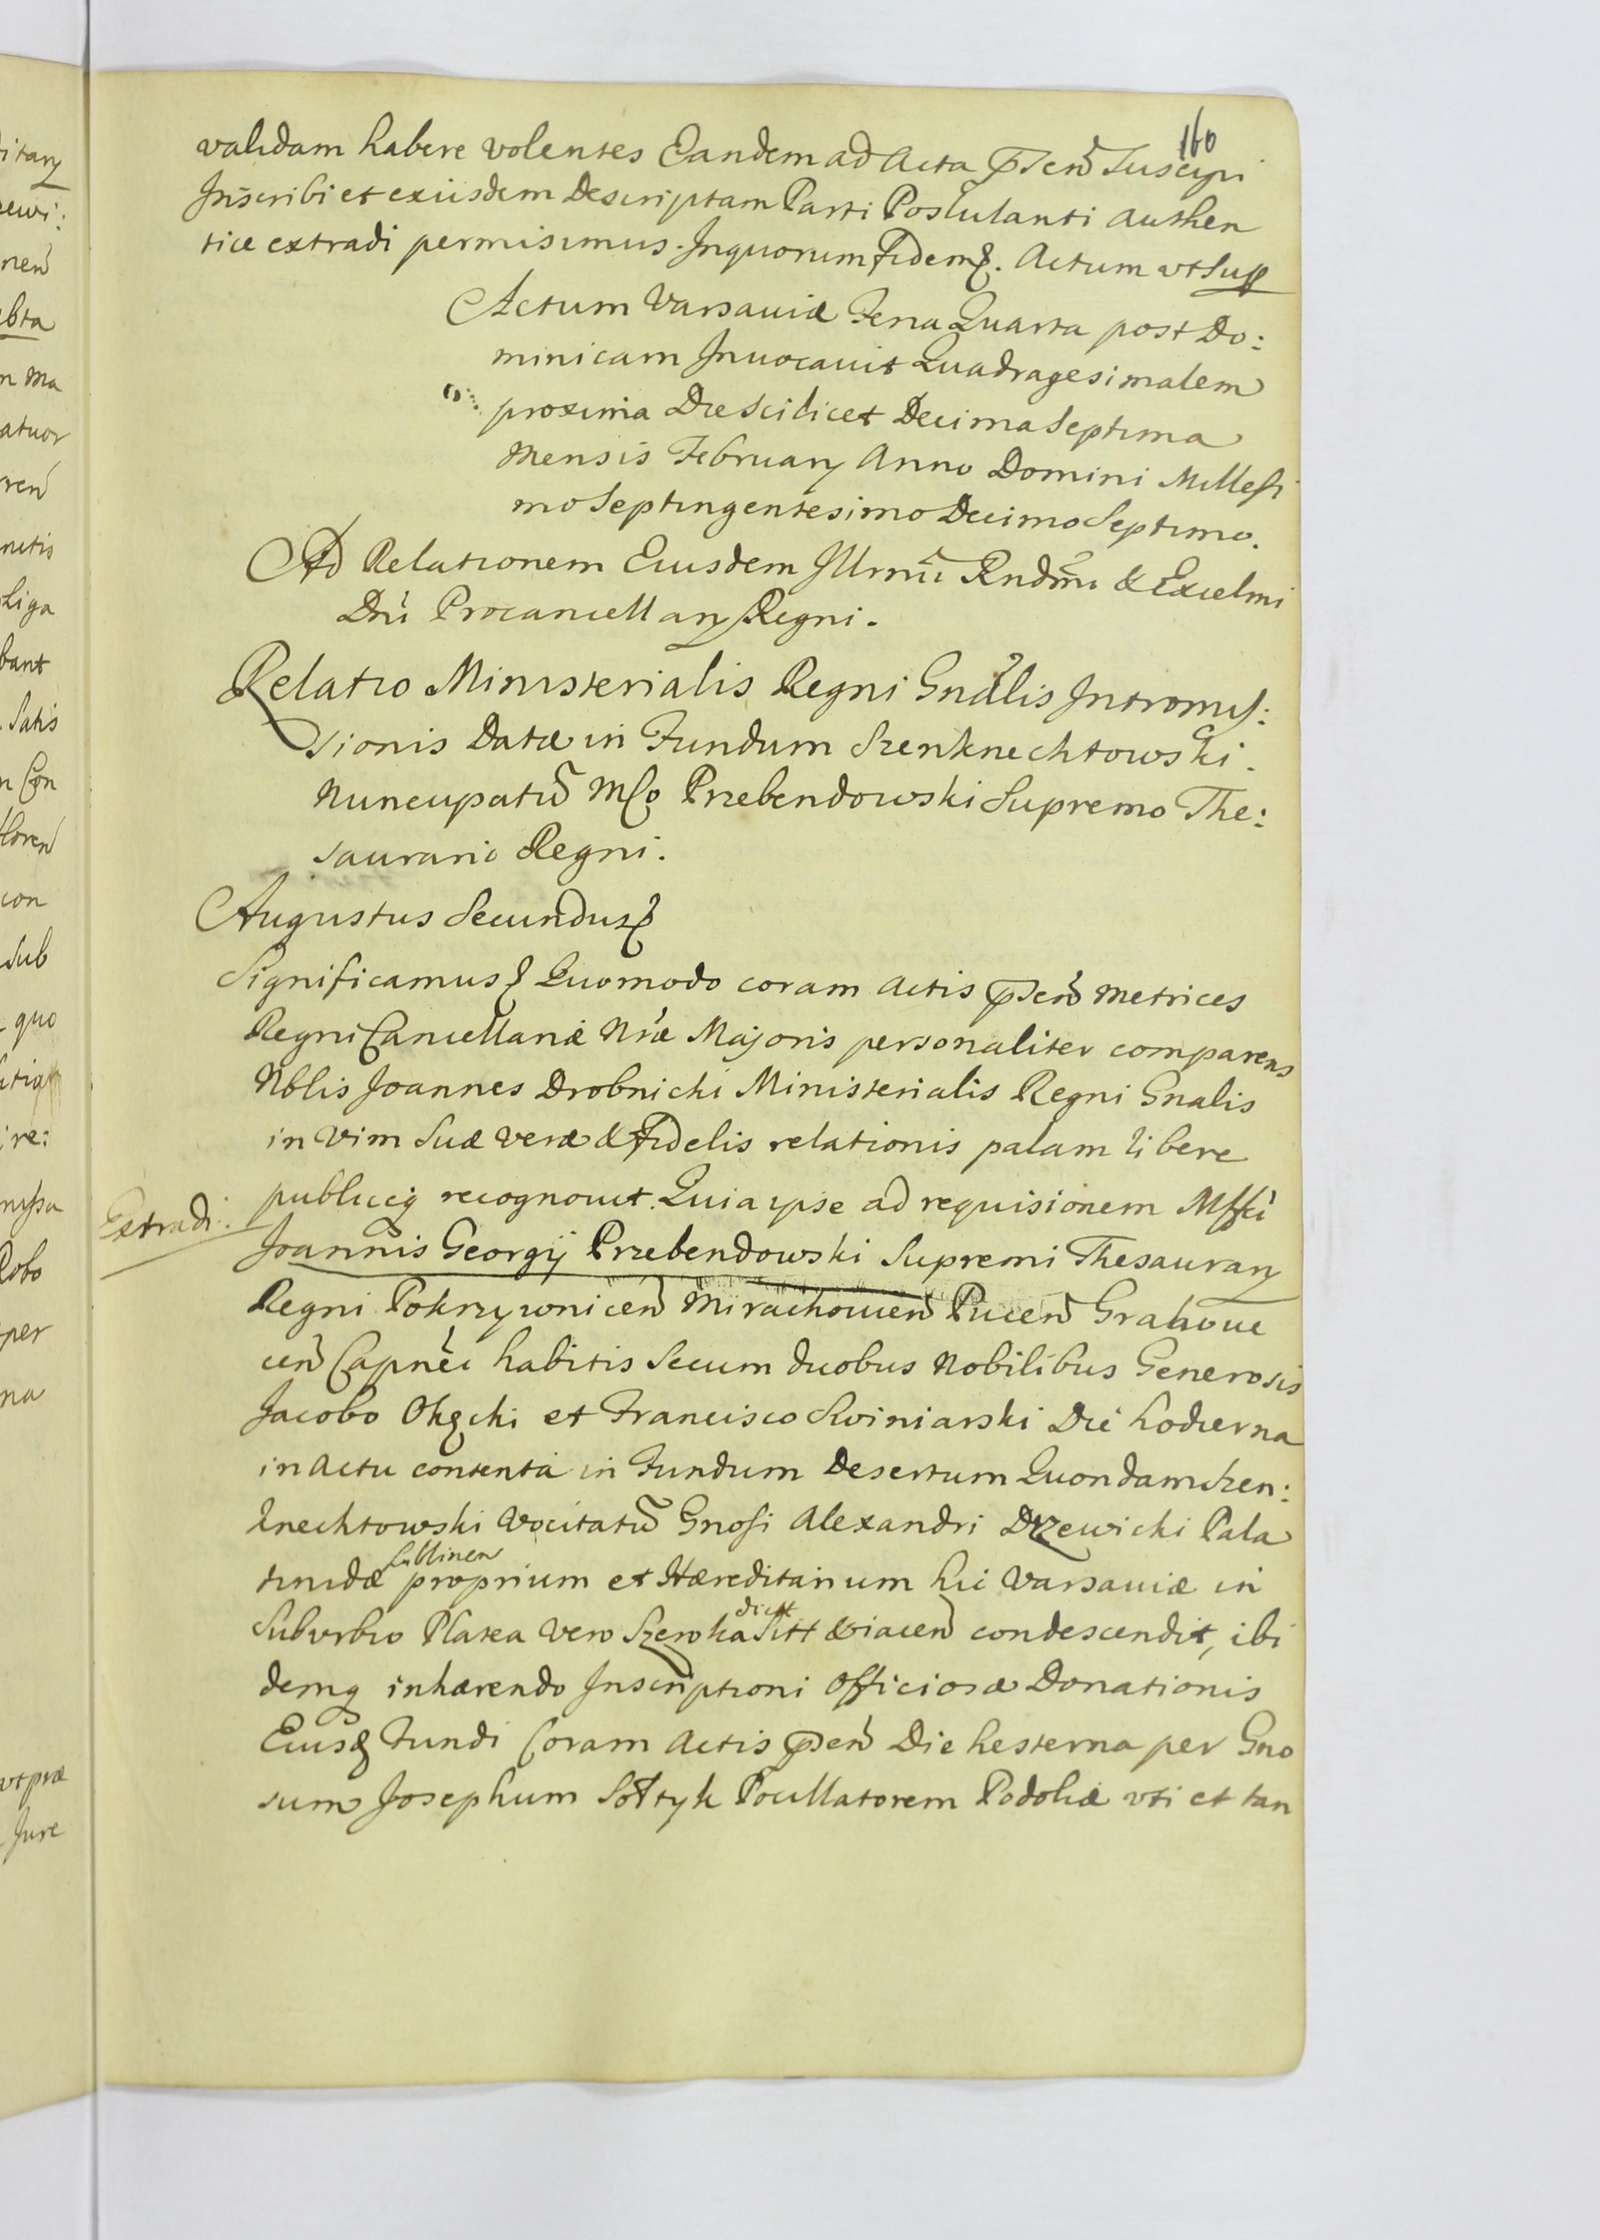 160
validam habere volentes Eandem ad Acta pñsen Suscipi
Inscribi et exiüsdem Descriptam Parti Postulanti Authen
tice extradi permisimus. In quorum Fidem. Actum vt Sup
Actum Varsaviæ Feria Quarta post Do:
minicam Invocavit Quadragesimalem
proxima Die Scilicet Decima Septima
Mensis February Anno Domini Millesi
mo Septingentesimo Decimo Septimo.
Ad Relationem Eiusdem Illrmi Rndmi & Excelmi
Dni Procancellary Regni.
Relatio Ministerialis Regni Gnalis Intromis:
sionis Datæ in Fundum Szenknechtowski
Nuncupatũ Mco Przebendowski Supremo The:
saurario Regni.
Augustus Secundus
Significamus Quomodo coram Actis pñsen Metrices
Regni Cancellariæ Nræ Majoris personaliter comparens
Nblis Joannes Drobnicki Ministerialis Regni Gnalis
in vim Suæ veræ & Fidelis relationis palam libere
publiceq recognovit. Quia ipse ad requisionem Mffci
Extradi:
Joannis Georgij Przebendowski Supremi Thesaurary
Regni Pokrzywnicen Mirachowien Pucen Grabowie
cen Capnei habitis Secum duobus Nobilibus Generosis
Jacobo Okęcki et Francisco Swiniarski Die hodierna
in Actu contenta in Fundum Desertum Quondam Szen:
knechtowski Vocitatũ Gnosi Alexandri Drzewicki Pala
tinidæ Lublinen proprium et Hæreditarium hic Varsaviæ in
Suburbio Platea vero Szeroka dict Sitt & iacen condescendit, ibi
demq inhærendo Inscriptioni Officiosæ Donationis
Eiusd Fundi Coram Actis pñsen Die hesterna per Gno
sum Josephum Sołtyk Pocillatorem Podoliæ vti et tan